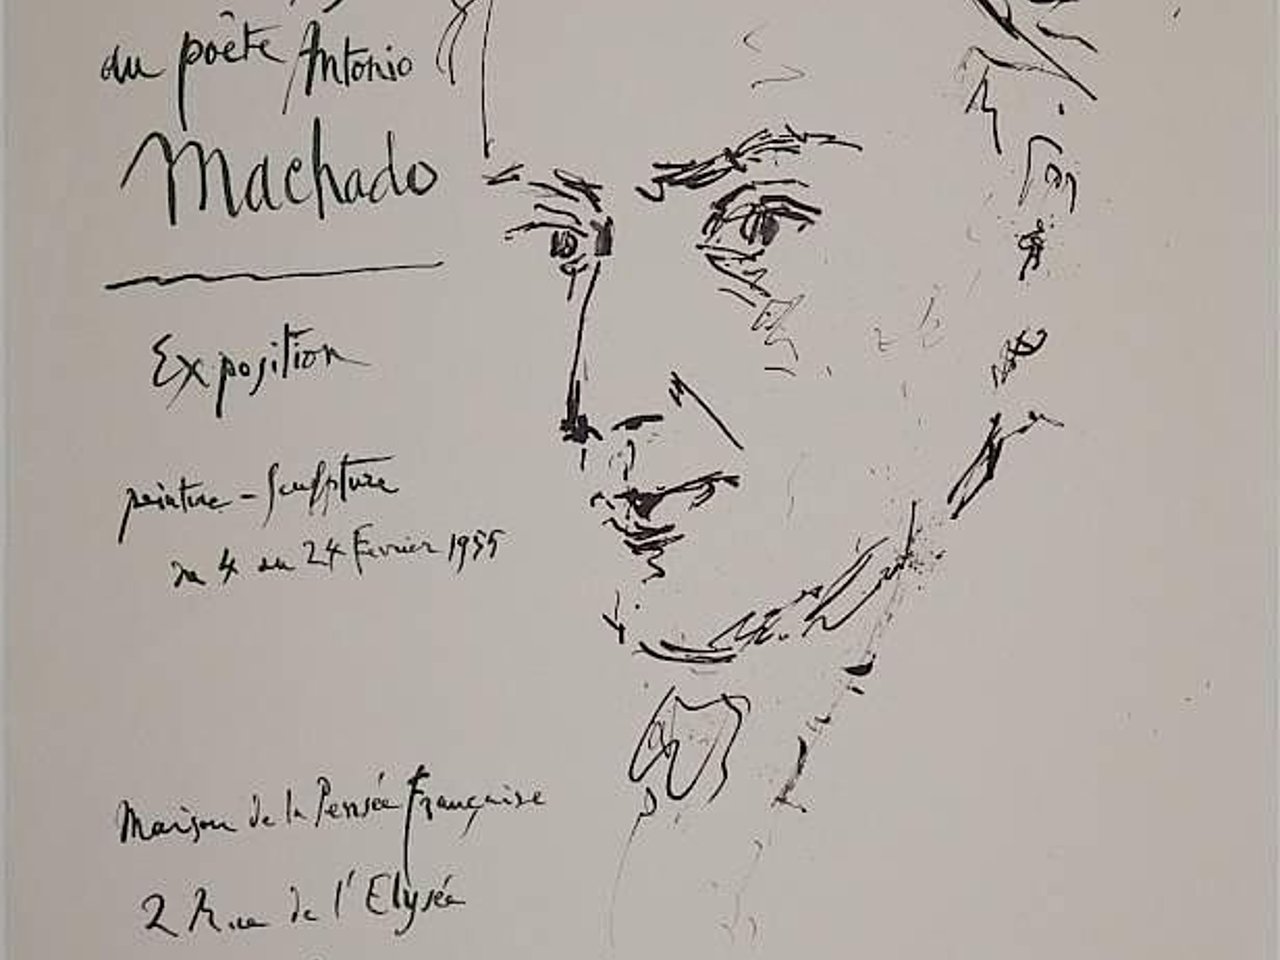 du poète Antonio
Machado
Exposition
peinture - Sculpture
du 4 au 24 Février 1955
Maison de la Pensée Française
2 Rue de l'Elysée